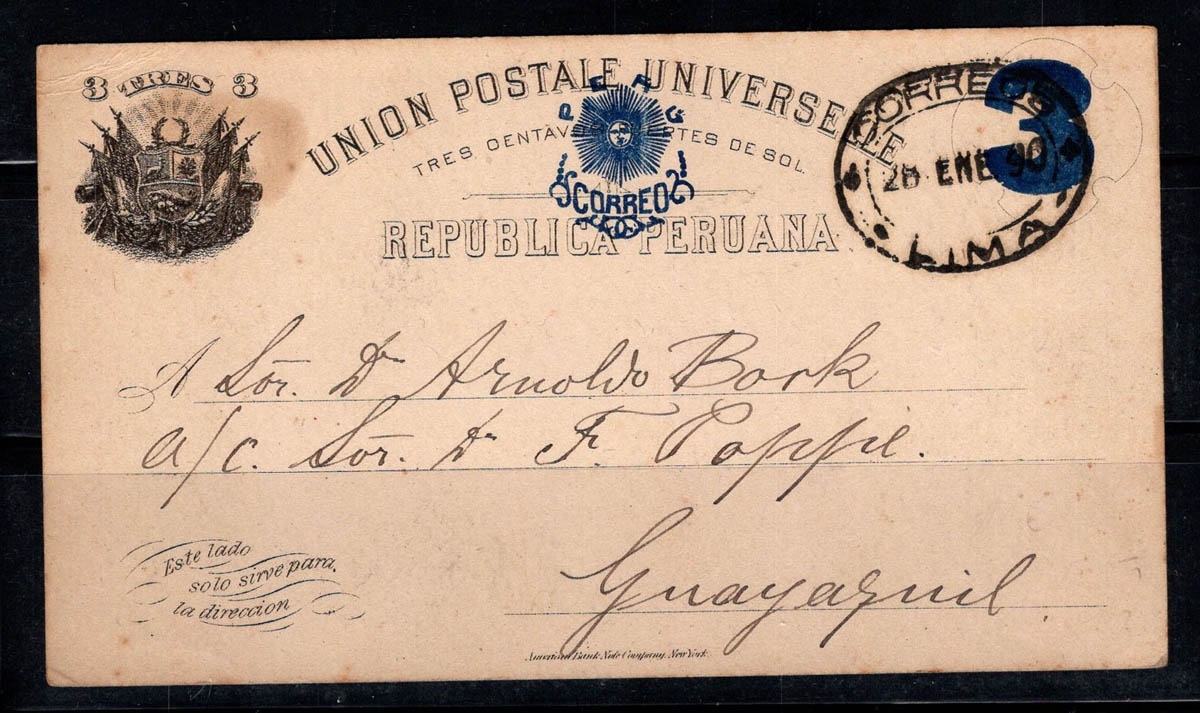 3 TRES 3
UNION POSTALE UNIVERSELLE
TRES CENTAV
RTES DE SOL.
CORREO
REPUBLICA PERUANA
3
CORREOS
28 ENE 90
LIMA
A Sor. Dn Arnoldo Bork
a/c. Sor. Dn F. Poppe.
Guayaquil
Este lado
solo sirve para
la direccion
American Bank Note Company, New York.